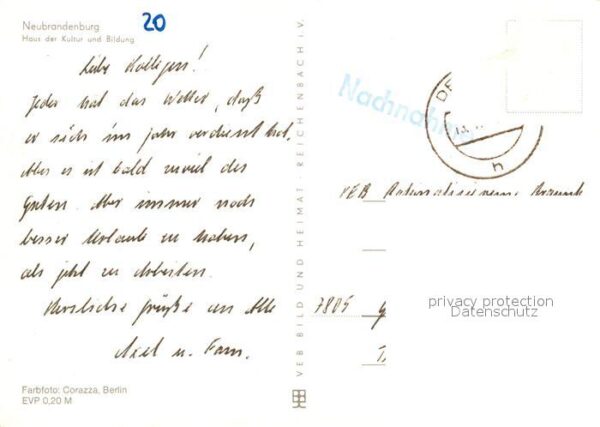 Neubrandenburg
Haus der Kultur und Bildung
20
Liebe Kollegen!
Jeder hat das Wetter, daß
er sich im Jahr verdient hat.
Aber es ist bald zuviel des
Guten. Aber immer noch
besser Urlaub zu haben,
als jetzt zu arbeiten.
Herzliche Grüße an Alle
Axel u. Fam.
Farbfoto: Corazza, Berlin
EVP 0,20 M
VEB BILD UND HEIMAT · REICHENBACH i. V.
Nachnahme
VEB Rationalisierung Braunk
7805 G
privacy protection
Datenschutz